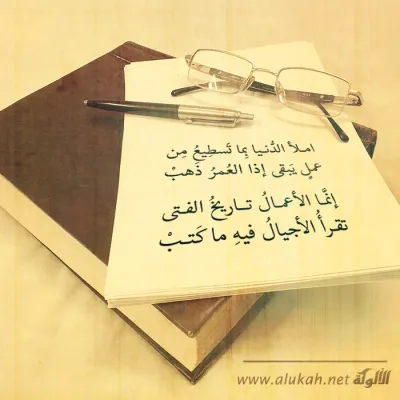 املأ الدُّنيا بِما تَسطِيعُ مِن
عملٍ يَبقى إذا العُمرُ ذَهبْ
إنَّما الأعمالُ تاريخُ الفتى
تقرأُ الأجيالُ فيهِ ما كَتبْ
www.alukah.net الألوكة